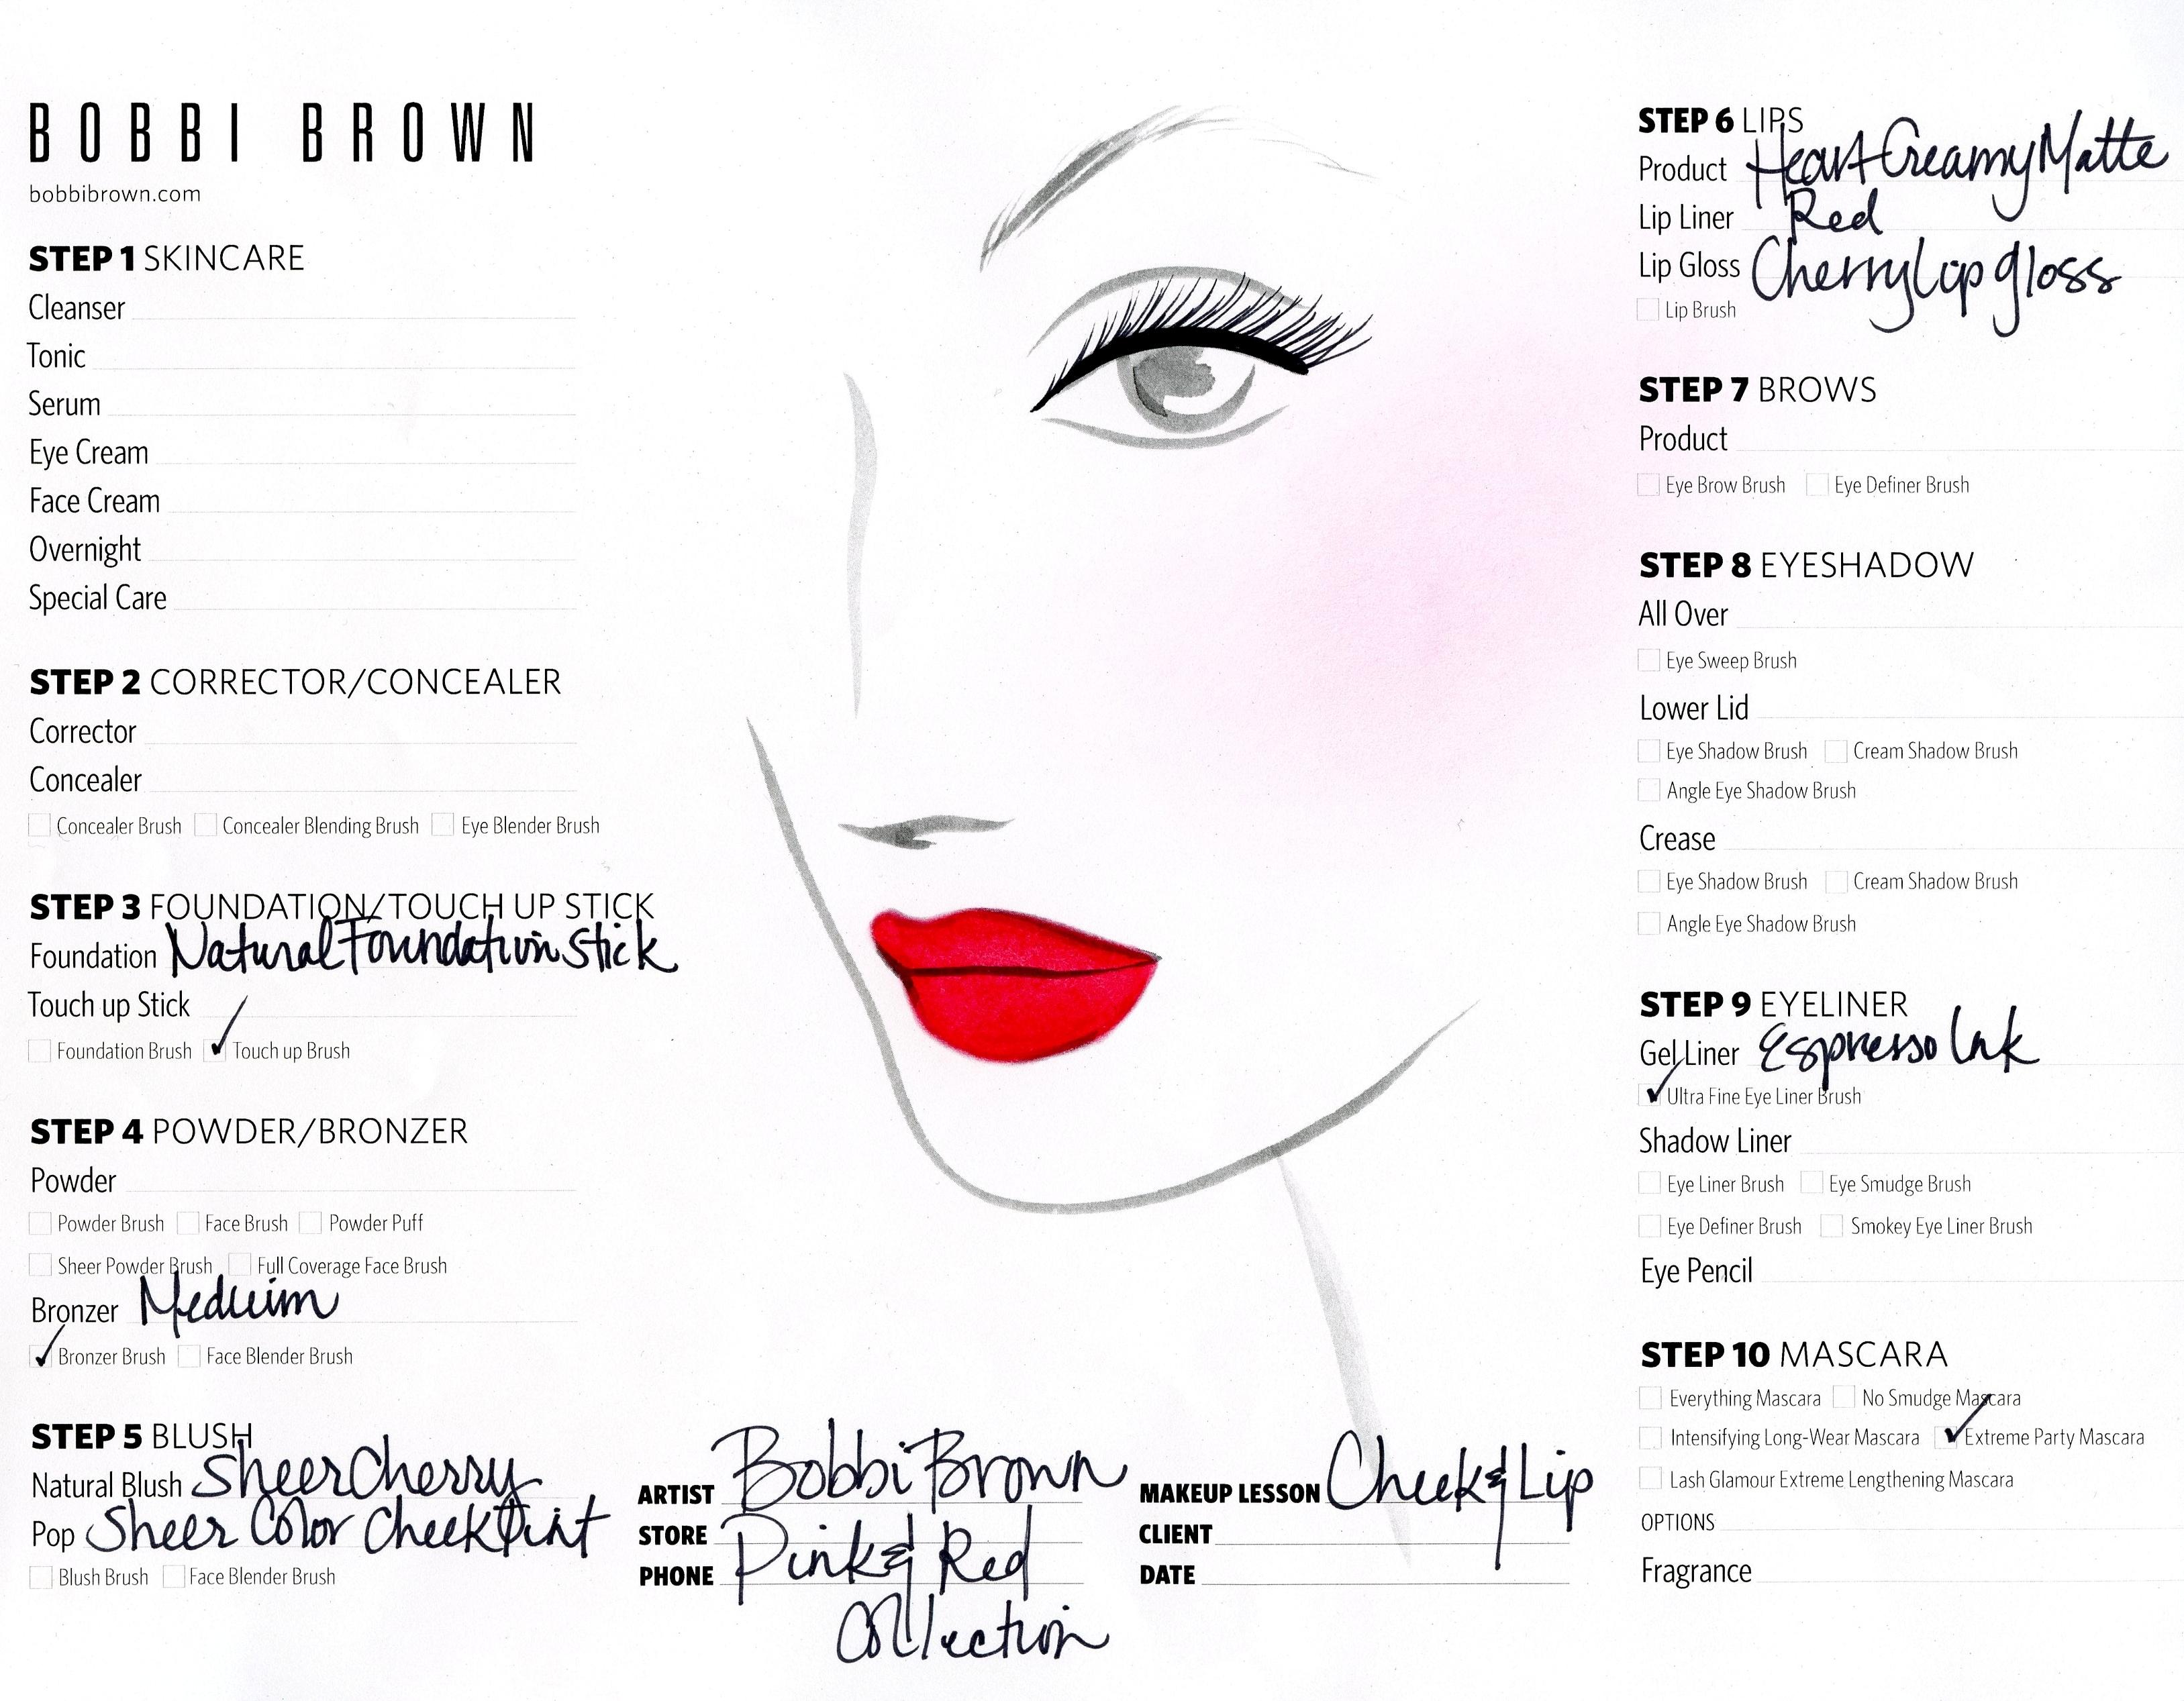 BOBBI BROWN
bobbibrown.com
STEP 1 SKINCARE
Cleanser
Tonic
Serum
Eye Cream
Face Cream
Overnight
Special Care
STEP 2 CORRECTOR/CONCEALER
Corrector
Concealer
Concealer Brush Concealer Blending Brush Eye Blender Brush
STEP 3 FOUNDATION/TOUCH UP STICK
Foundation Natural Foundation Stick
Touch up Stick
Foundation Brush Touch up Brush
STEP 4 POWDER/BRONZER
Powder
Powder Brush Face Brush Powder Puff
Sheer Powder Brush Full Coverage Face Brush
Bronzer Medium
Bronzer Brush Face Blender Brush
STEP 5 BLUSH
Natural Blush Sheer Cherry
Pop Sheer Color Cheek Tint
Blush Brush Face Blender Brush
ARTIST Bobbi Brown
STORE Pink & Red
PHONE
Collection
MAKEUP LESSON Cheek & Lip
CLIENT
DATE
STEP 6 LIPS
Product Heart Creamy Matte
Lip Liner Red
Lip Gloss Cherry Lip gloss
Lip Brush
STEP 7 BROWS
Product
Eye Brow Brush Eye Definer Brush
STEP 8 EYESHADOW
All Over
Eye Sweep Brush
Lower Lid
Eye Shadow Brush Cream Shadow Brush
Angle Eye Shadow Brush
Crease
Eye Shadow Brush Cream Shadow Brush
Angle Eye Shadow Brush
STEP 9 EYELINER
Gel Liner Espresso Ink
Ultra Fine Eye Liner Brush
Shadow Liner
Eye Liner Brush Eye Smudge Brush
Eye Definer Brush Smokey Eye Liner Brush
Eye Pencil
STEP 10 MASCARA
Everything Mascara No Smudge Mascara
Intensifying Long-Wear Mascara Extreme Party Mascara
Lash Glamour Extreme Lengthening Mascara
OPTIONS
Fragrance